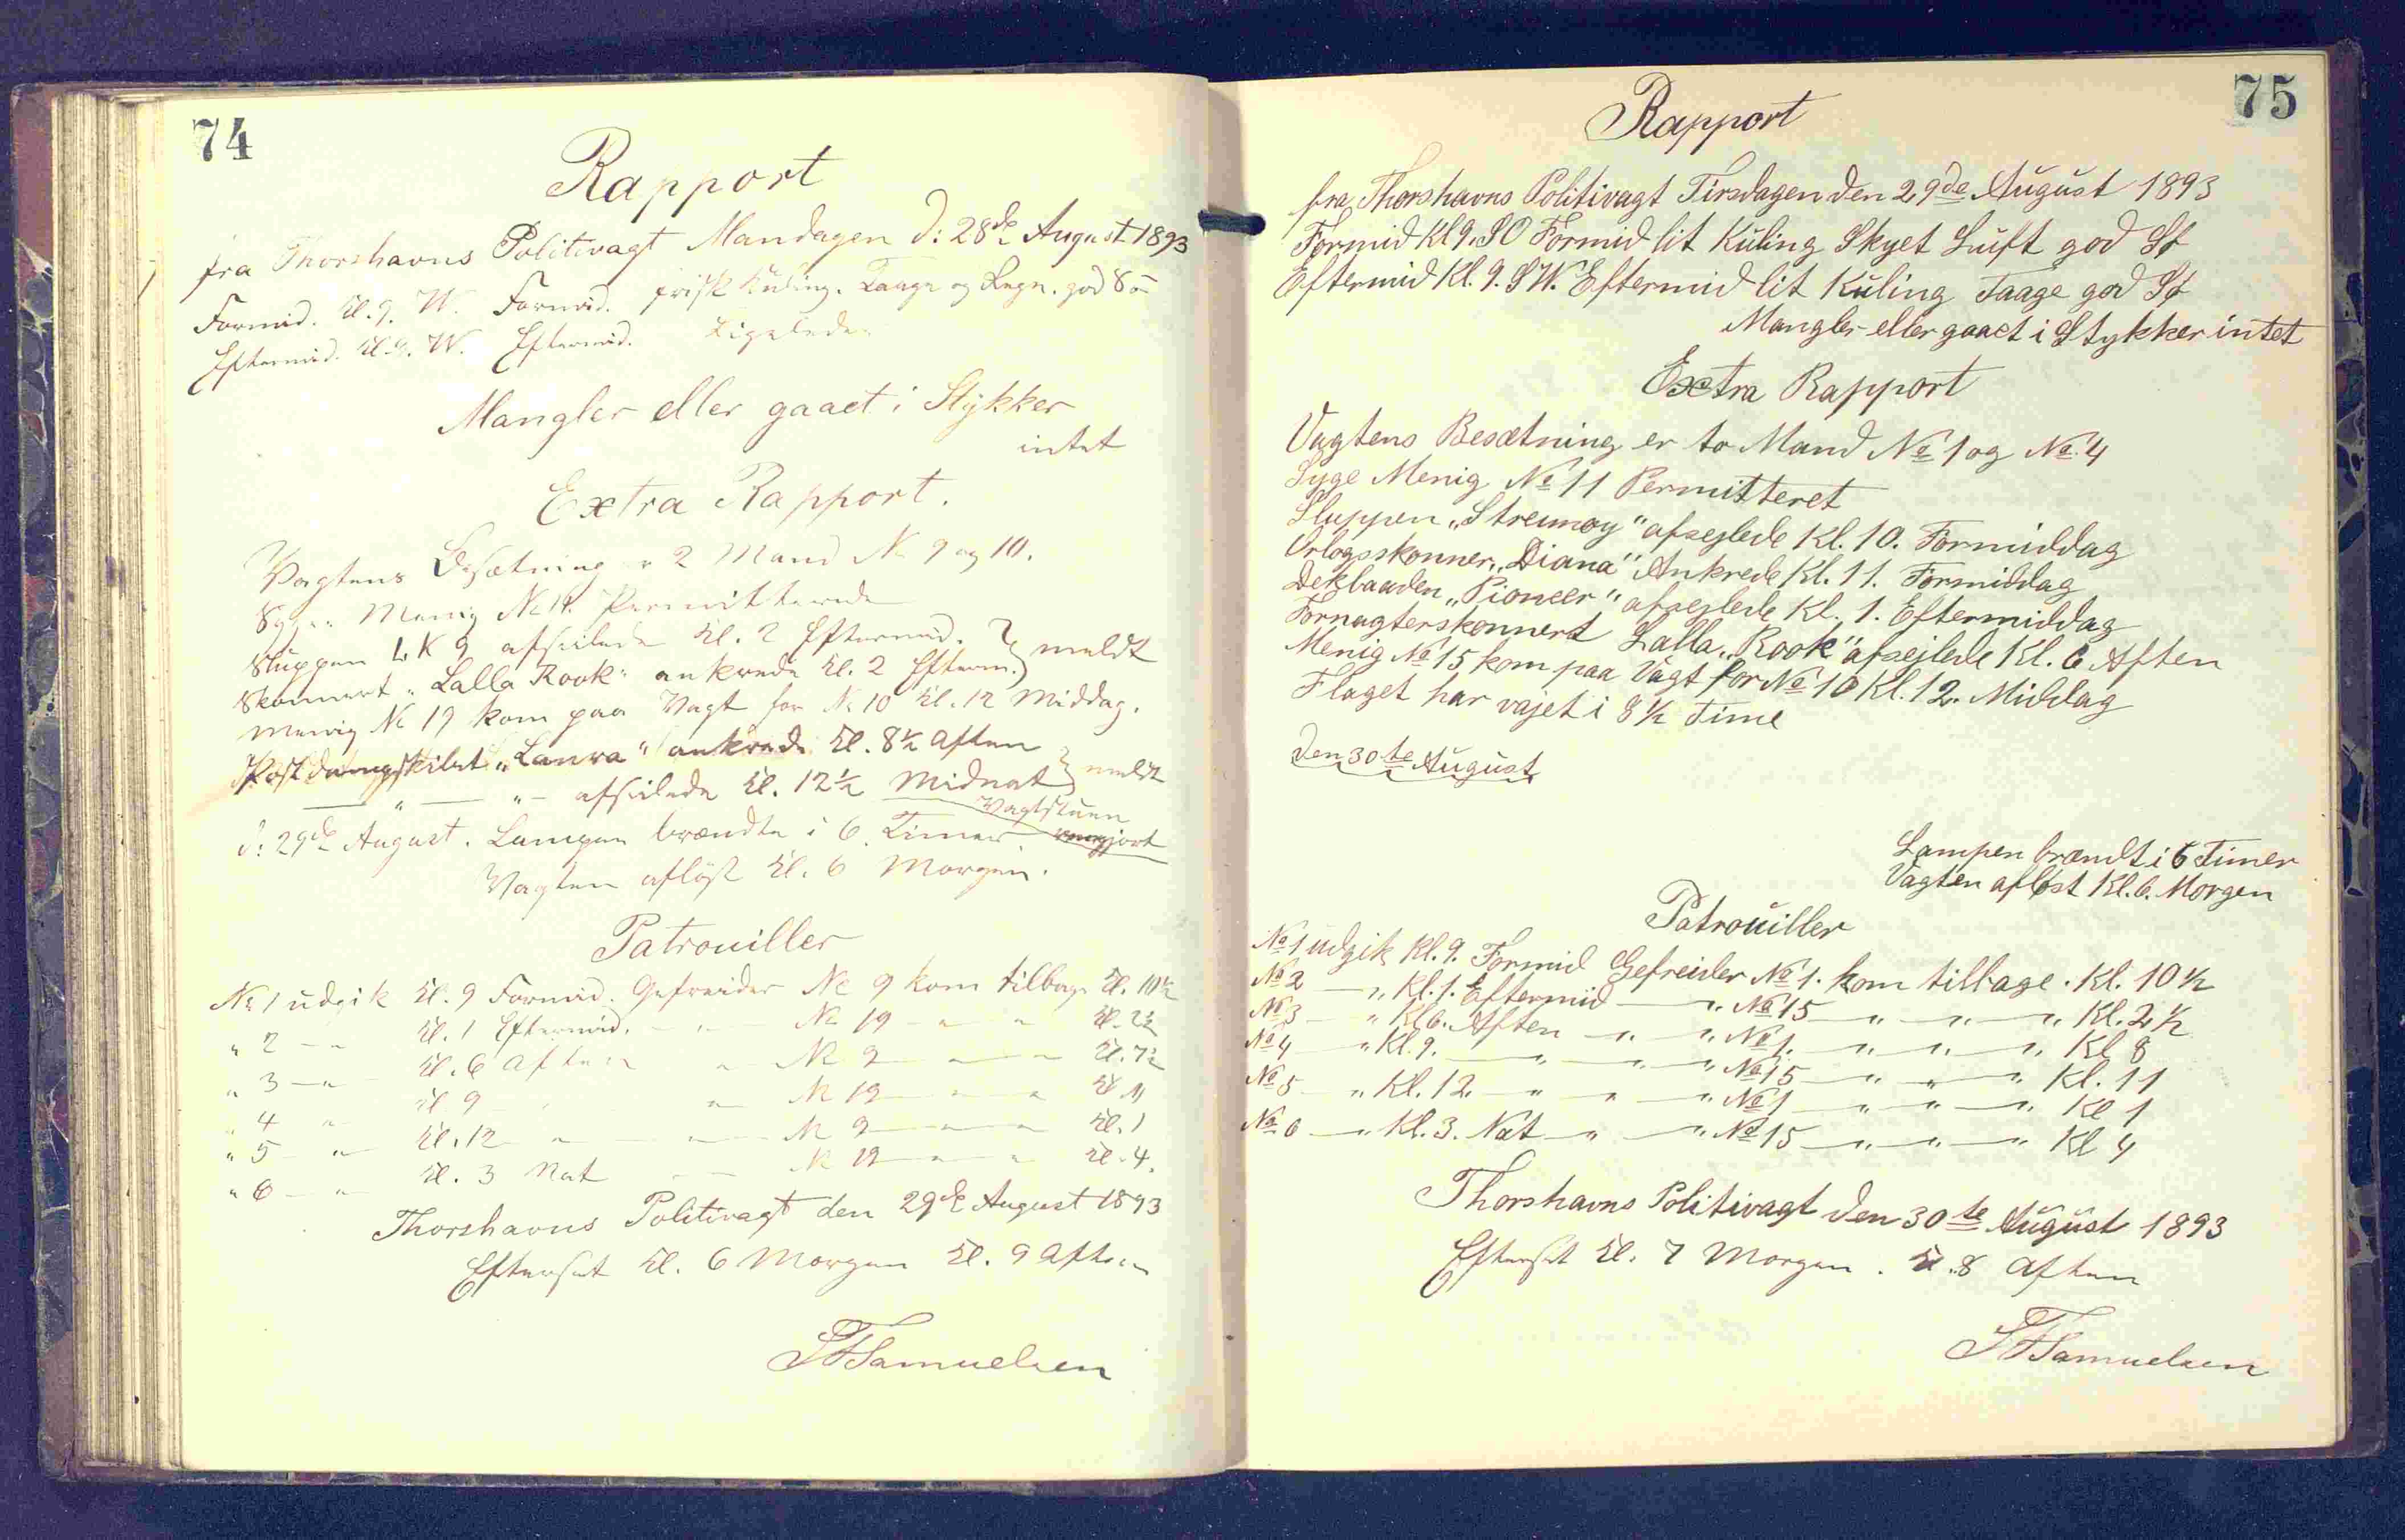 74
Rapport
fra Thorshavns Politivagt Mandagen d: 28de August 1893
Formid. Kl. 9. W. Formid. frisk Kuling. Taage og Regn. god Sø
Eftermid. Kl. 9. W. Eftermid. Ligeledes
Mangler eller gaaet i Stykker
intet
Extra Rapport.
Vagtens Besætning er 2 Mand No 9 og 10.
Syge: Menig No 11. Permitterede
Sluppen L K 9 afseilede Kl. 2 Eftermid. } meldt
Skonnert "Lalla Rook" ankrede Kl. 2 Efterm. }
Menig No 19 kom paa Vagt for No 10 Kl. 12 Middag.
Postdampskibet "Laura" ankrede Kl. 8½ Aften } meldt
— " — " – afseilede Kl. 12½ Midnat }
Vagtstuen
d: 29de August. Lampen brændte i 6 Timer rengjort
Vagten afløst Kl. 6 Morgen.
Patrouiller
No 1 udgik Kl. 9 Formid. Gefreider No 9 kom tilbage Kl. 10½
" 2 — " Kl. 1 Eftermid. — " — No 19 — " — " Kl. 2½
" 3 — " Kl. 6 Aften " — No 9 — " — " Kl. 7½
" 4 " Kl 9 " — No 19 — " — " Kl 11
" 5 — " Kl. 12 — " — " — No 9 — " — " Kl. 1
" 6 — " Kl. 3 Nat — No 19 — " — " Kl. 4.
Thorshavns Politivagt den 29de August 1893
Efterset Kl. 6 Morgen Kl. 9 Aften
Samuelsen
75
Rapport
fra Thorshavns Politivagt Tirsdagen den 29de August 1893
Formid Kl 9. SO Formid lit Kuling Skyet Luft god Sø
Eftermid Kl. 9. SW. Eftermid lit Kuling Taage god Sø
Mangler eller gaaet i Stykker intet
Extra Rapport
Vagtens Besætning er to Mand No 1 og No 4
Syge Menig No 11 Permitteret
Sluppen "Streimoy" afsejlede Kl. 10. Formiddag
Orlogsskonner "Diana" Ankrede Kl. 11. Formiddag
Dekbaaden "Pioneer" afsejlede Kl. 1. Eftermiddag
Fornagterskonnert Lalla "Rook" afsejlede Kl. 6 Aften
Menig No 15 kom paa Vagt for No 10 Kl. 12. Middag
Flaget har vajet i 8½ Time
Den 30te August
Lampen brændt i 6 Timer
Vagten afløst Kl. 6. Morgen
Patrouiller
No 1 udgik Kl. 9. Formid Gefreider No 1. kom tilbage. Kl. 10½
No 2 — " Kl. 1. Eftermid — " No 15 — " — " — " Kl. 2½
No 3 — " Kl 6. Aften — " — " No 1. — " — " — " Kl 8
No 4 — " Kl. 9. — " — " — " No 15 — " — " — " Kl. 11
No 5 — " Kl. 12. — " — " — " No 1 — " — " — " Kl 1
No 6 — " Kl. 3. Nat — " — " No 15 — " — " — " Kl 4
Thorshavns Politivagt den 30te August 1893
Efterset Kl. 7 Morgen. Kl. 8 Aften
Samuelsen